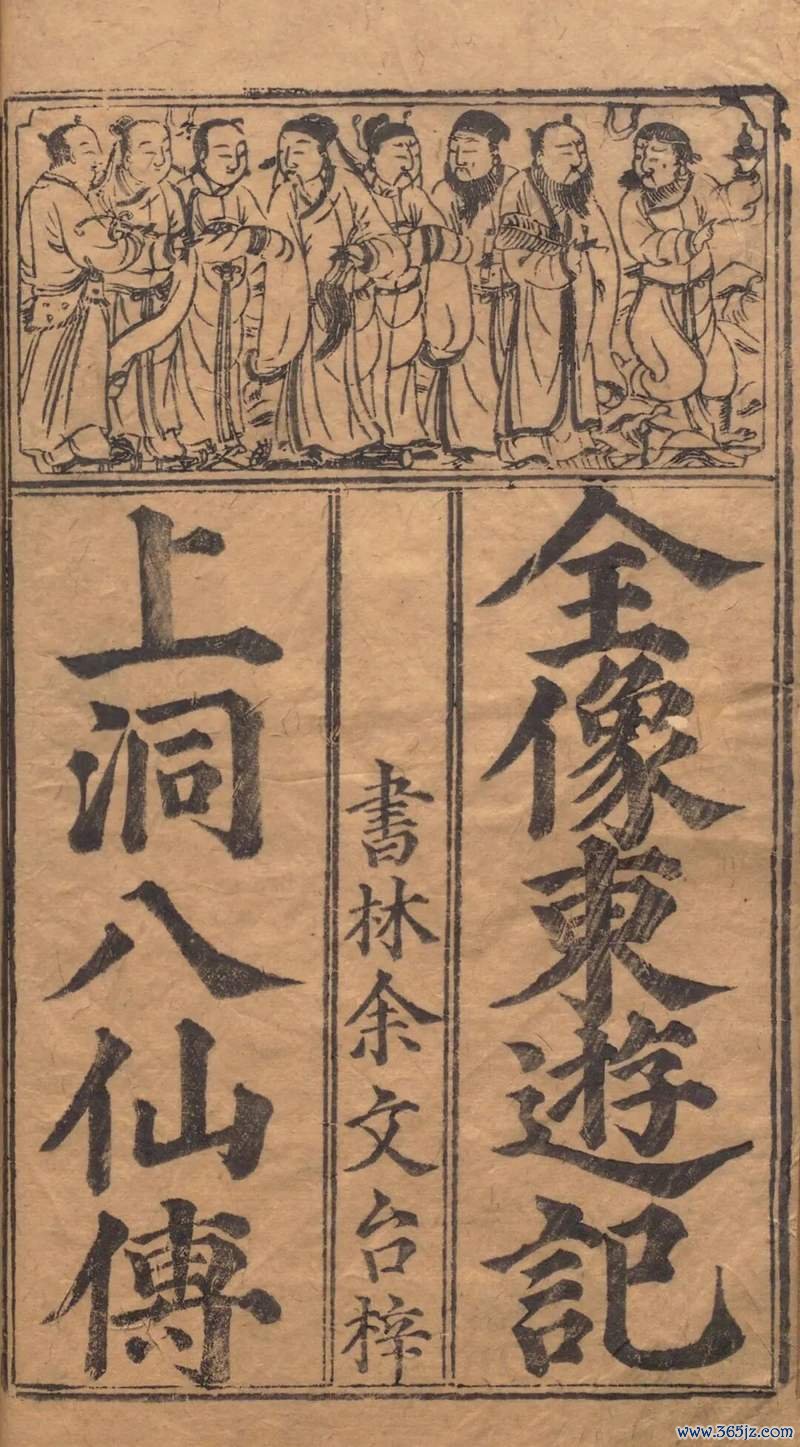 全像東遊記
書林余文台梓
上洞八仙傳
www.365jz.com